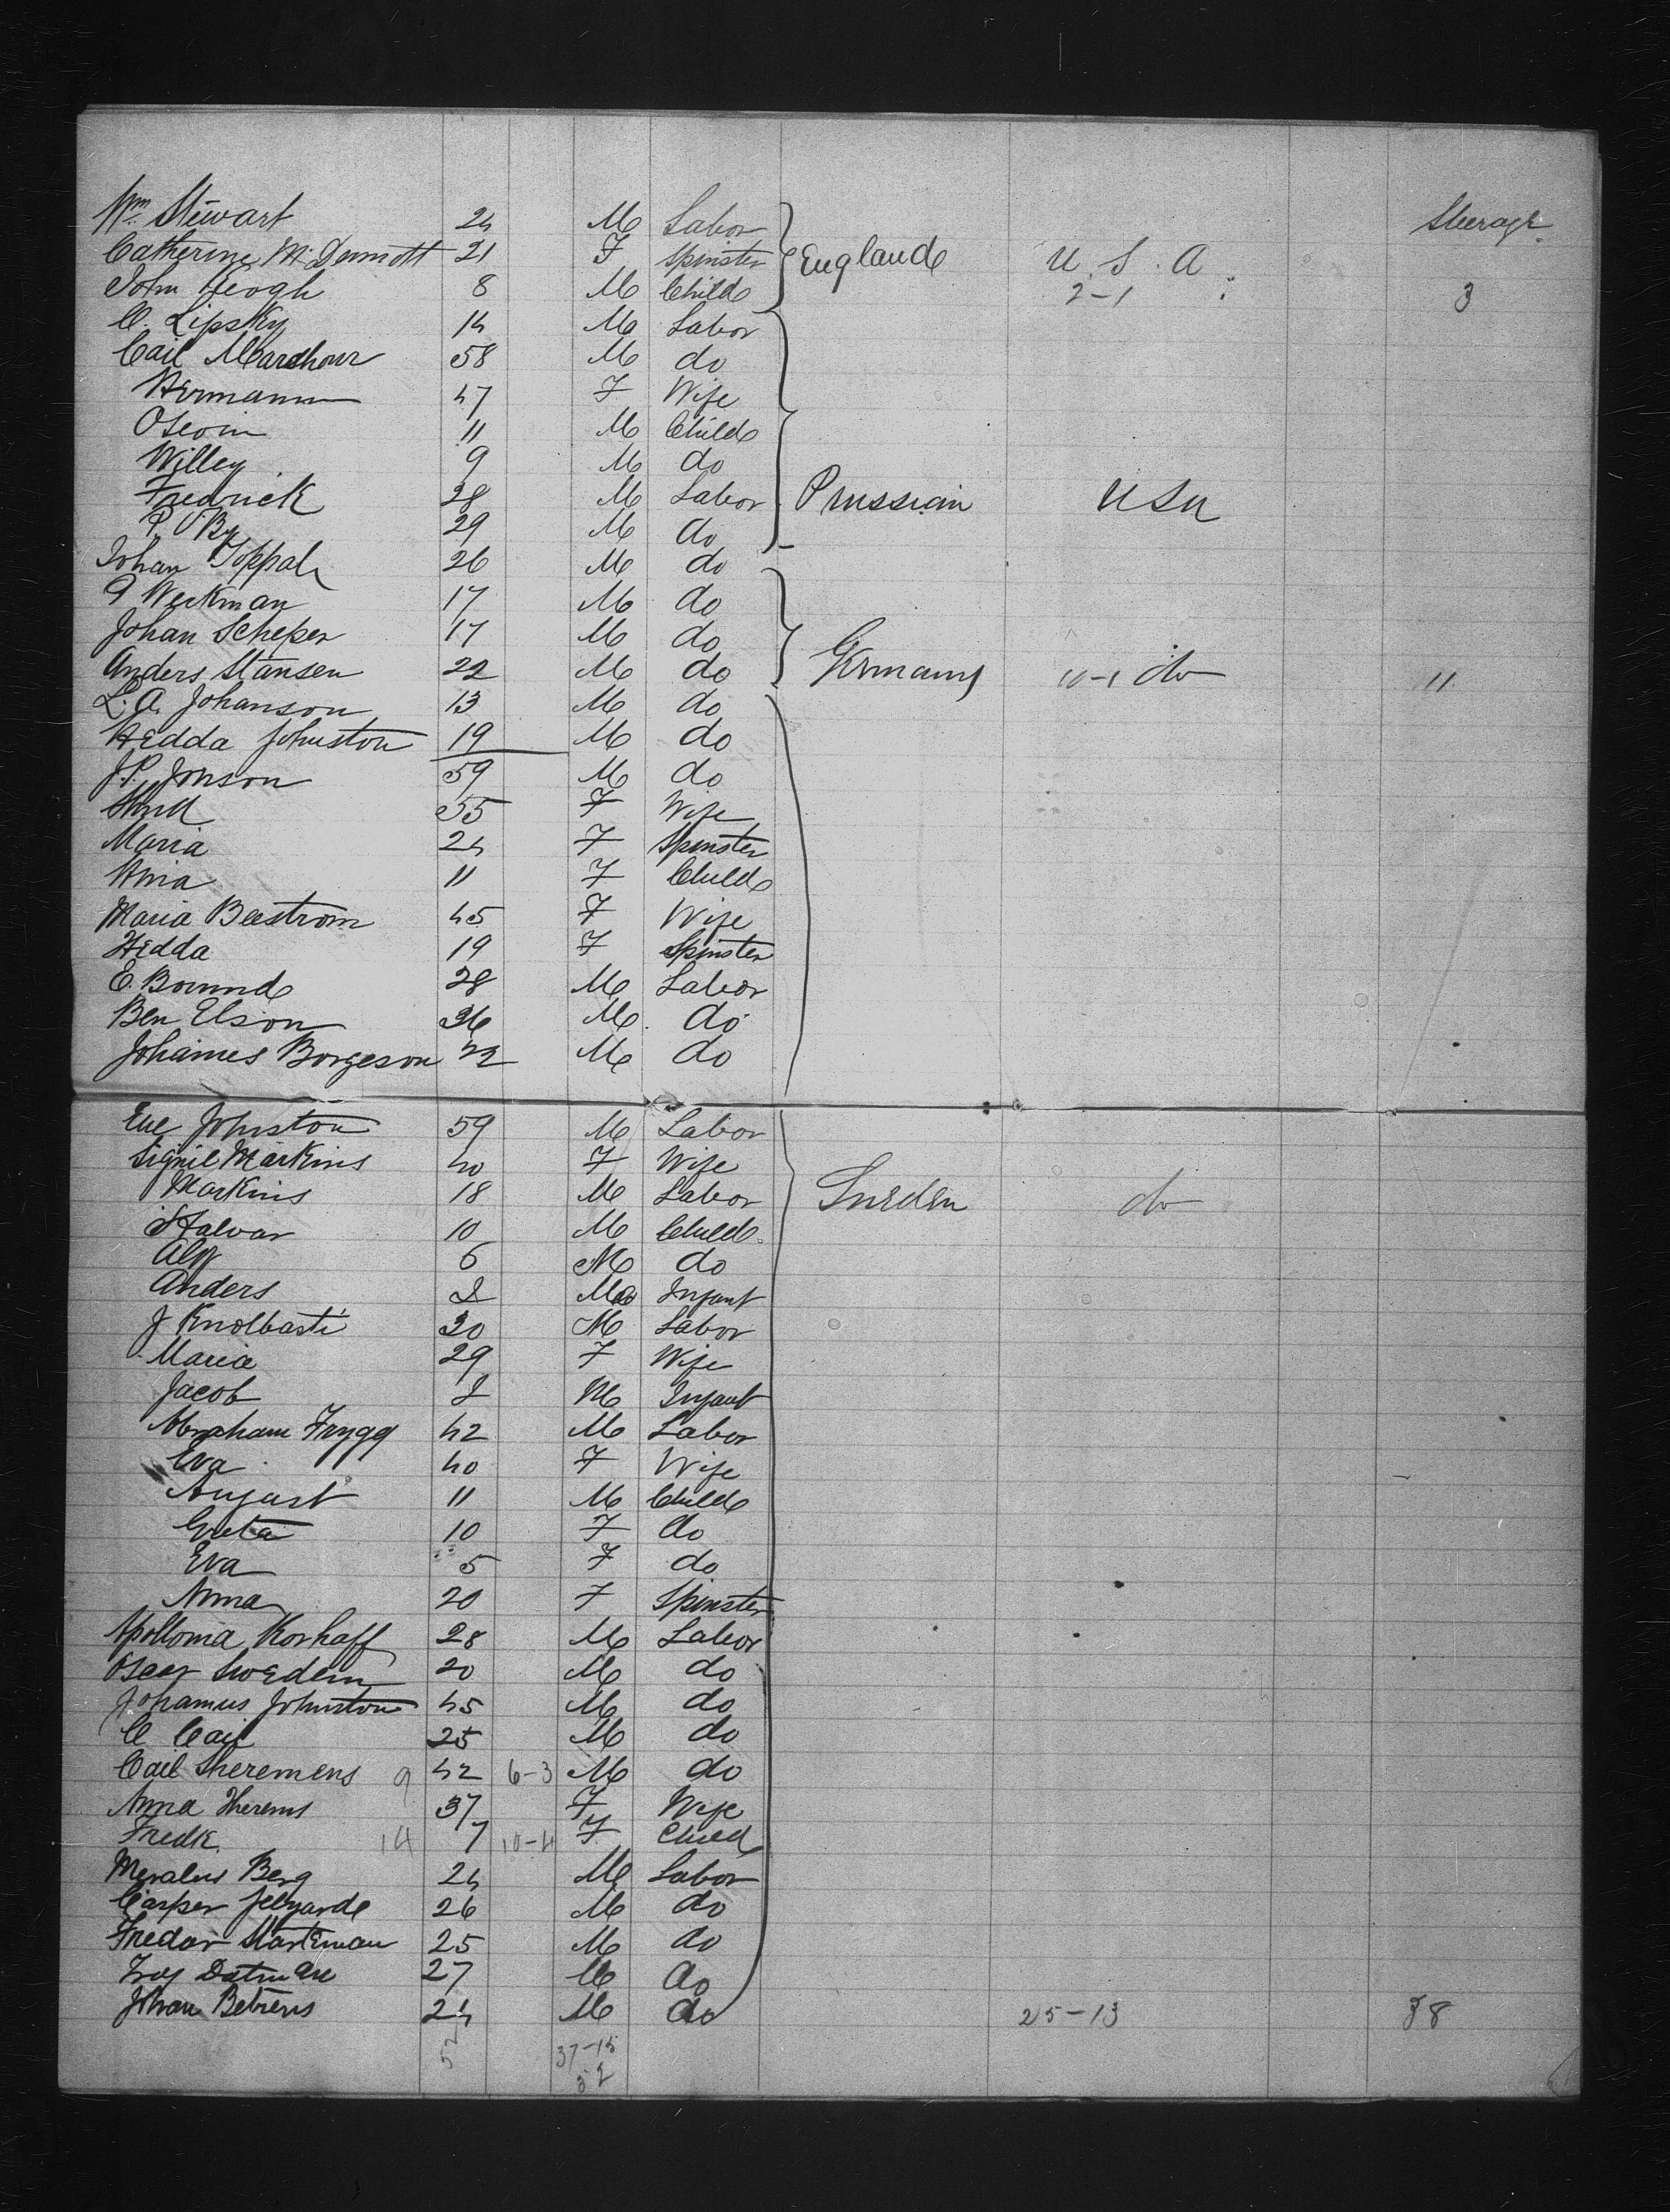 Wm Stewart 24 M Labor Steerage
Catherine McDermott 21 F Spinster England U.S.A.
John Keogh 8 M Child 2-1 3
C. Lipsky 14 M Labor
Carl Marshour 58 M do
Hermann 47 F Wife
11 M Child
Willey 9 M do
Fredrick 28 M Labor Prussian USA
P. By 29 M do
Johan Toppal 26 M do
G Werkman 17 M do
Johan Scheper 17 M do
Anders Hansen 22 M do Germany 10-1 do 11
L. A. Johanson 13 M do
Hedda Johnston 19 M do
J. P. Jonson 59 M do
55 F Wife
Maria 24 F Spinster
11 F Child
Maria Beestrom 45 F Wife
Hedda 19 F Spinster
E. 28 M Labor
Ben Elson 36 M do
Johannes Borgeson 22 M do
Eue Johnston 59 M Labor
Signil Markins 40 F Wife
Markins 18 M Labor Sweden do
Halvar 10 M Child
6 M do
Anders M Infant
J 30 M Labor
Maria 29 F Wife
Jacob M Infant
Abraham Frygg 42 M Labor
Eva 40 F Wife
August 11 M Child
Greta 10 F do
Eva 5 F do
Anna 20 F Spinster
Apollonia Korhaff 28 M Labor
Oscar Swedein 20 M do
Johannus Johnston 45 M do
C Carl 25 M do
Carl Theremens 9 42 6-3 M do
Anna Therems 37 F Wife
Fredk 14 7 10-4 F Child
Berg 24 M Labor
Casper 26 M do
Fredor Starkman 25 M do
27 M do
Johan Betrens 24 M do 25-13 38
52 37-15
52